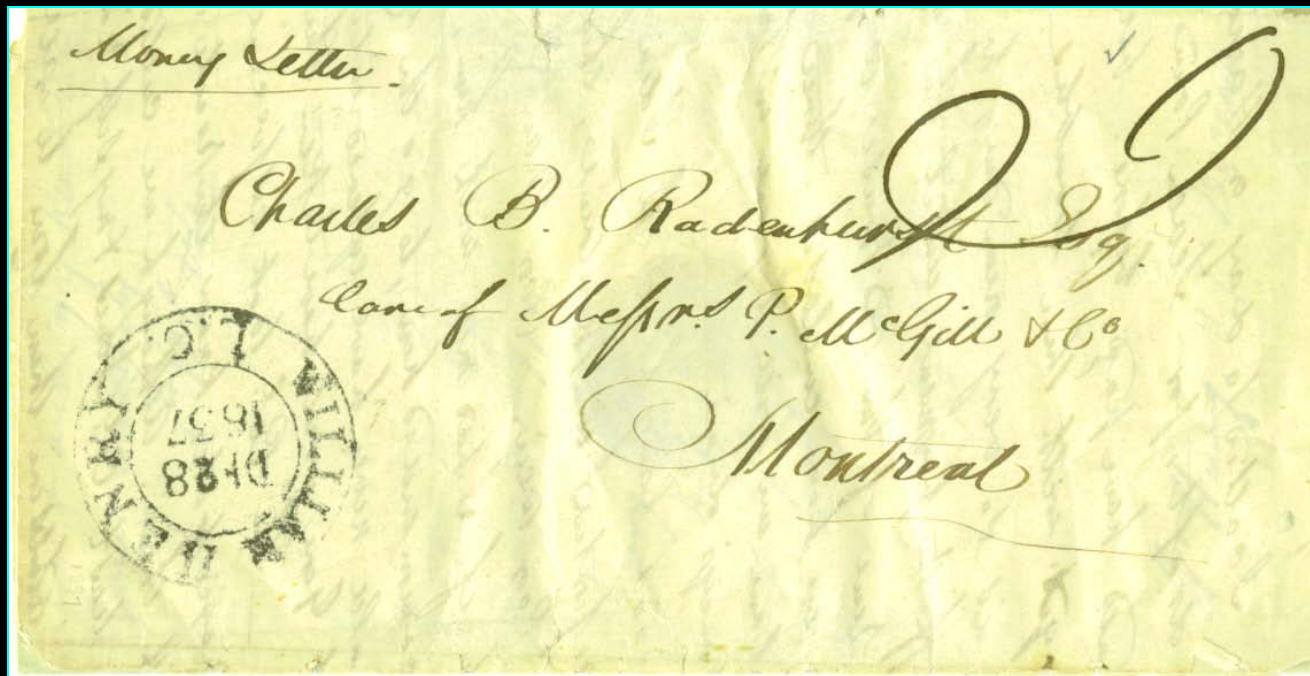 Money Letter.
Charles B. Radenhurst Esq.
Care of Messrs. P. McGill & Co
Montreal
WILLIAM HENRY
L.C.
DE 28
1837